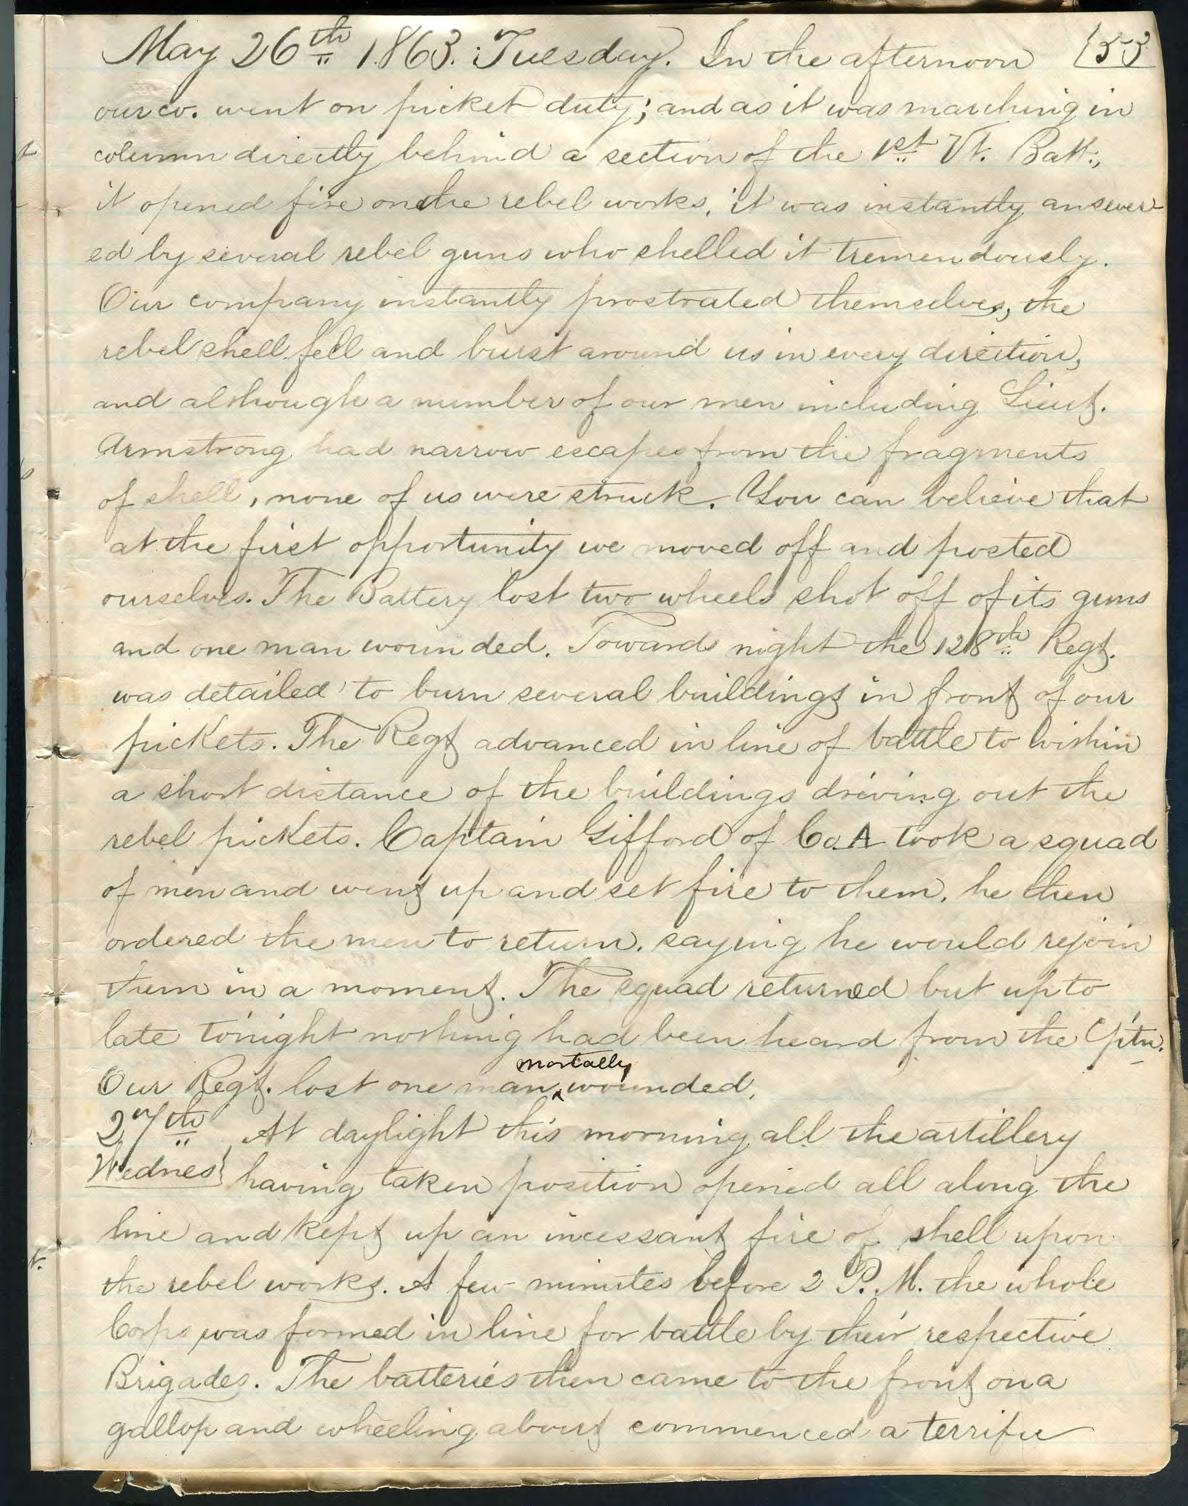 May 26th 1863. Tuesday. In the afternoon 153
our co. went on picket duty; and as it was marching in
column directly behind a section of the 1st Vt. Batt.,
it opened fire on the rebel works, it was instantly answer-
ed by several rebel guns who shelled it tremendously.
Our company instantly prostrated themselves, the
rebel shell fell and burst around us in every direction,
and although a number of our men including Lieut.
Armstrong had narrow escapes from the fragments
of shell, none of us were struck. You can believe that
at the first opportunity we moved off and posted
ourselves. The Battery lost two wheels shot off of its guns
and one man wounded. Towards night the 128th Regt.
was detailed to burn several buildings in front of our
pickets. The Regt advanced in line of battle to within
a short distance of the buildings driving out the
rebel pickets. Captain Gifford of Co. A took a squad
of men and went up and set fire to them, he then
ordered the men to return, saying he would rejoin
them in a moment. The squad returned but up to
late tonight nothing had been heard from the Cptn.
Our Regt. lost one man mortally wounded.
27th At daylight this morning all the artillery
Wednes} having taken position opened all along the
line and kept up an incessant fire of shell upon
the rebel works. A few minutes before 2 P.M. the whole
Corps was formed in line for battle by their respective
Brigades. The batteries then came to the front on a
gallop and wheeling about commenced a terrific